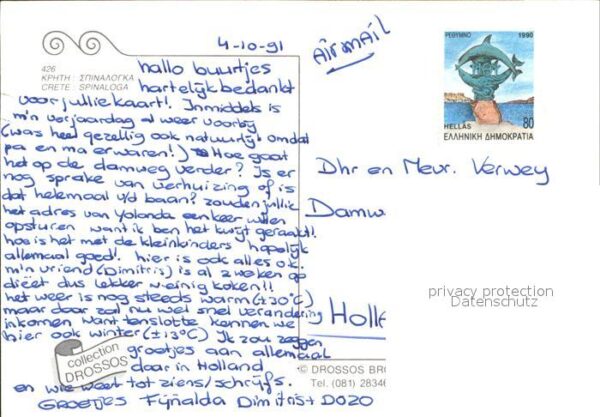 4-10-91
AIRMAIL
ΡΕΘΥΜΝΟ 1990
HELLAS 80
ΕΛΛΗΝΙΚΗ ΔΗΜΟΚΡΑΤΙΑ
426
ΚΡΗΤΗ : ΣΠΙΝΑΛΟΓΚΑ
CRETE : SPINALOGA
hallo buurtjes
hartelijk bedankt
voor jullie kaart! Inmiddels is
m'n verjaardag al weer voorbij
(was heel gezellig ook natuurlijk omdat
pa en ma er waren!) Hoe gaat
het op de damweg verder? Is er
nog sprake van verhuizing of is
dat helemaal v/d baan? zouden jullie
het adres van Yolonda een keer willen
opsturen want ik ben het kwijt geraakt!
hoe is het met de kleinkinders hopelijk
allemaal goed! hier is ook alles o.k.
m'n vriend (Dimitris) is al 2 weken op
dieët dus lekker weinig koken!!
het weer is nog steeds warm (±30°C)
maar daar zal nu wel snel verandering
inkomen want tenslotte kennen we
hier ook winter (±13°C) Ik zou zeggen
groetjes aan allemaal
daar in Holland
en wie weet tot ziens/schrijfs.
GROETJES Fijnalda Dimitris + DOZO
Dhr en Mevr. Verwey
Damw
Holl
privacy protection
Datenschutz
collection
DROSSOS
© DROSSOS BRO
Tel. (081) 28346